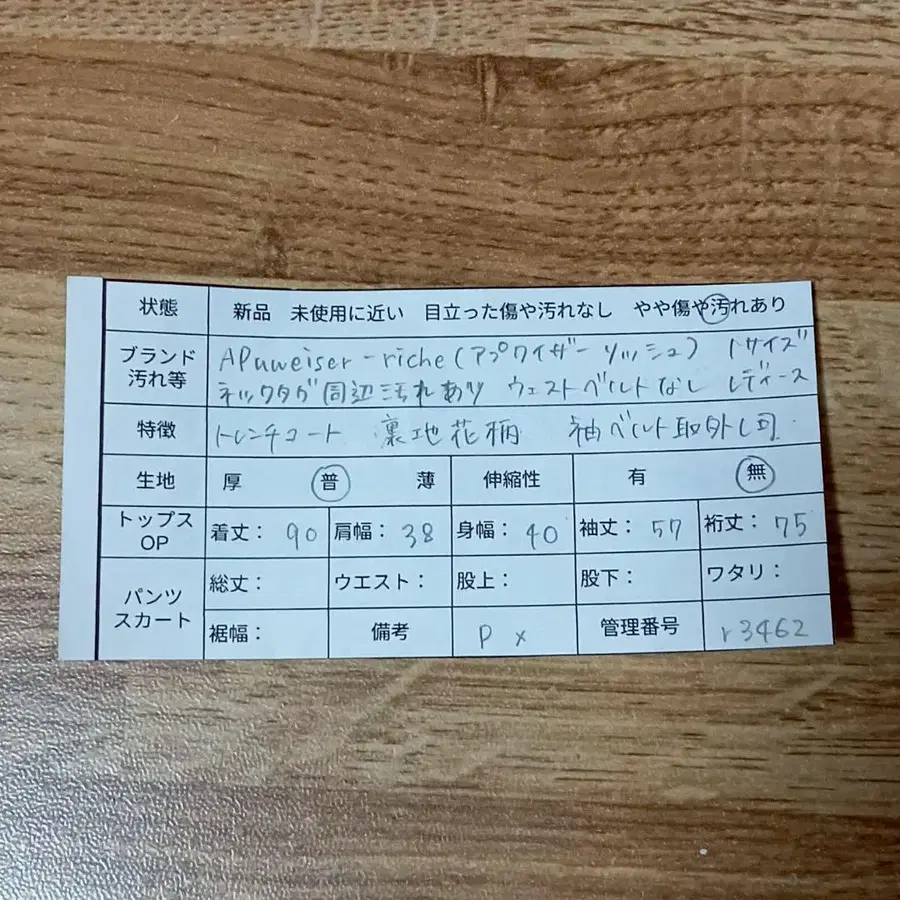 状態 新品 未使用に近い 目立った傷や汚れなし やや傷や汚れあり
ブランド 汚れ等 APuweiser-riche(アプワイザーリッシュ) 1サイズ
ネックタグ周辺汚れあり ウエストベルトなし レディース
特徴 トレンチコート 裏地花柄 袖ベルト取外し可
生地 厚 普 薄 伸縮性 有 無
トップス OP 着丈: 90 肩幅: 38 身幅: 40 袖丈: 57 裄丈: 75
パンツ スカート 総丈: ウエスト: 股上: 股下: ワタリ:
裾幅: 備考 P x 管理番号 r3462